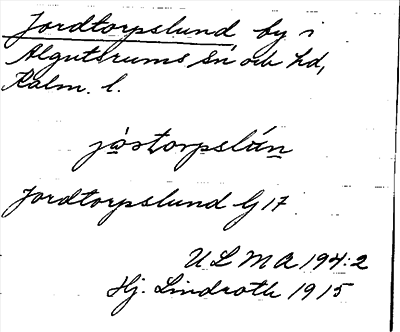 Jordtorpslund by i
Algutsrums sn och hd,
Kalm. l.
jo̱storpslún̠
Jordtorpslund G 17
ULMA 194:2
Hj. Lindroth 1915